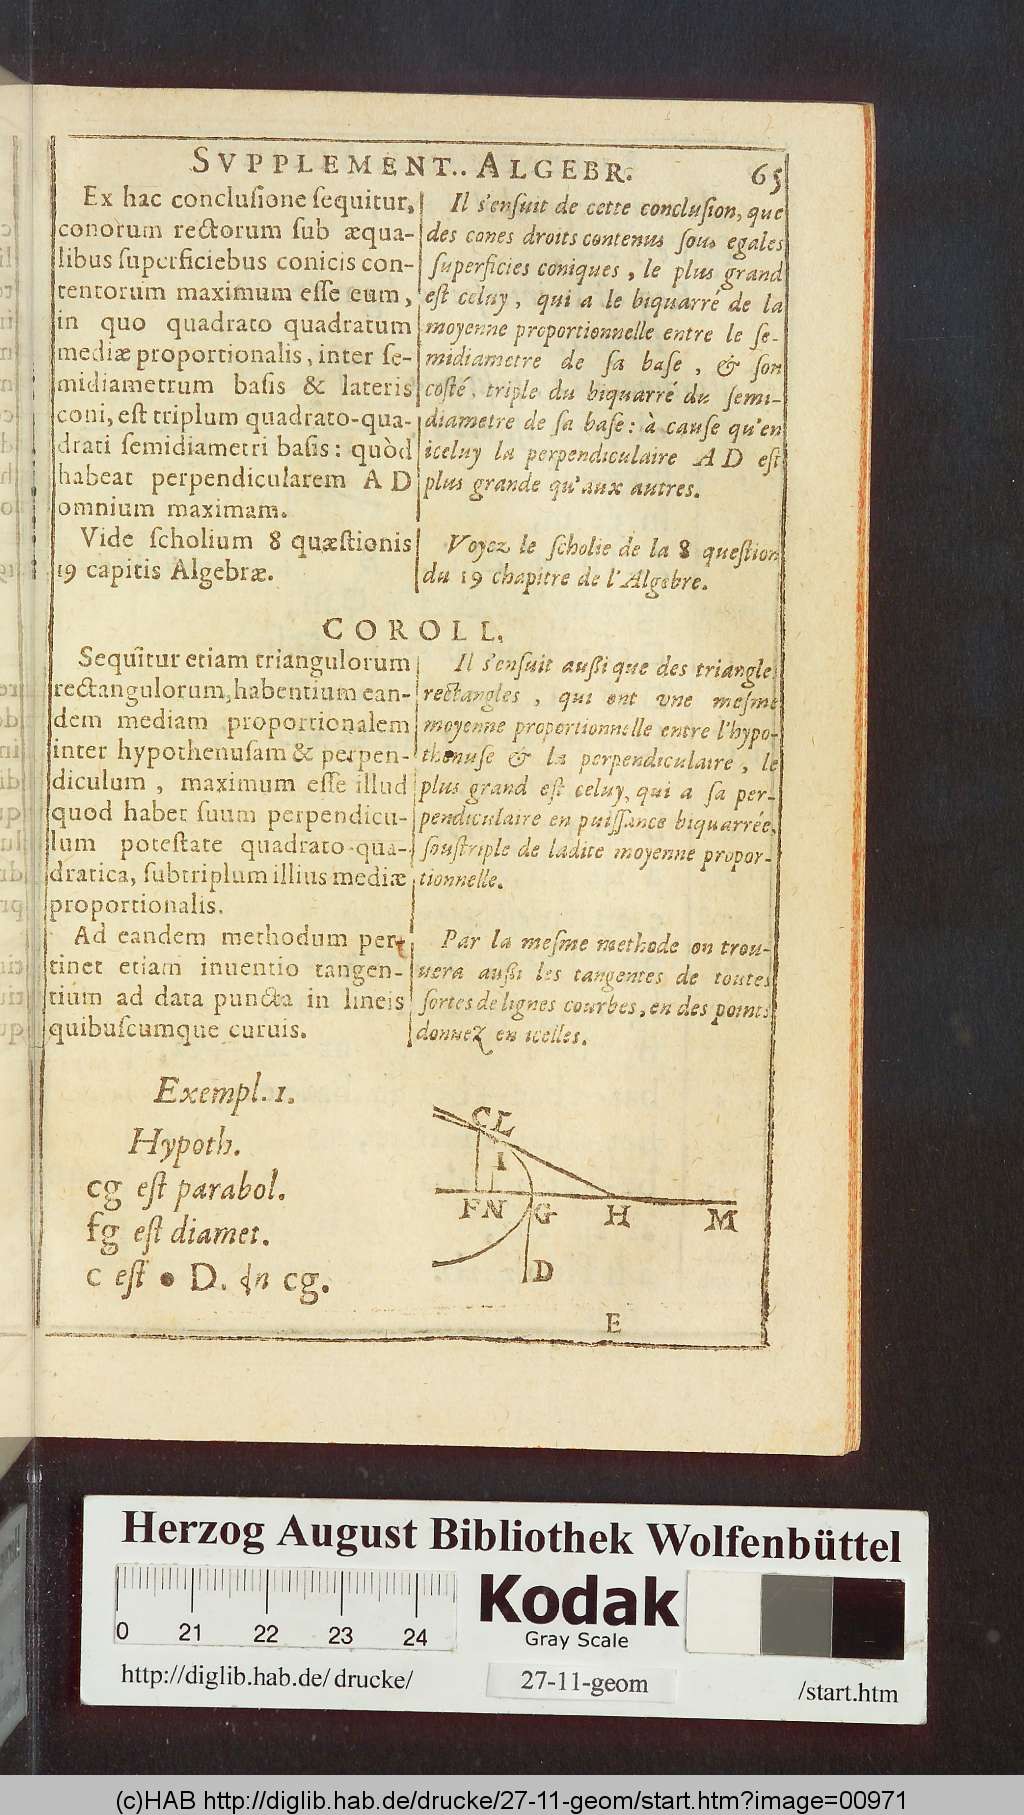 SVPPLEMENT.. ALGEBR. 65
Ex hac conclusione sequitur,
conorum rectorum sub æqua-
libus superficiebus conicis con-
tentorum maximum esse eum,
in quo quadrato quadratum
mediæ proportionalis, inter se-
midiametrum basis & lateris
coni, est triplum quadrato-qua-
drati semidiametri basis: quòd
habeat perpendicularem A D
omnium maximam.
Vide scholium 8 quæstionis
19 capitis Algebræ.
Il s'ensuit de cette conclusion, que
des cones droits contenus sous egales
superficies coniques, le plus grand
est celuy, qui a le biquarré de la
moyenne proportionnelle entre le se-
midiametre de sa base, & son
costé, triple du biquarré du semi-
diametre de sa base: à cause qu'en
iceluy la perpendiculaire A D est
plus grande qu'aux autres.
Voyez le scholie de la 8 question
du 19 chapitre de l'Algebre.
COROLL.
Sequitur etiam triangulorum
rectangulorum, habentium ean-
dem mediam proportionalem
inter hypothenusam & perpen-
diculum, maximum esse illud
quod habet suum perpendicu-
lum potestate quadrato-qua-
dratica, subtriplum illius mediæ
proportionalis.
Ad eandem methodum per-
tinet etiam inuentio tangen-
tium ad data puncta in lineis
quibuscumque curuis.
Il s'ensuit aussi que des triangles
rectangles, qui ont vne mesme
moyenne proportionnelle entre l'hypo-
thenuse & la perpendiculaire, le
plus grand est celuy, qui a sa per-
pendiculaire en puissance biquarrée,
soustriple de ladite moyenne propor-
tionnelle.
Par la mesme methode on trou-
uera aussi les tangentes de toutes
sortes de lignes courbes, en des points
donnez en icelles.
Exempl. 1.
Hypoth.
cg est parabol.
fg est diamet.
c est • D. in cg.
C L
I
F N G H M
D
E
Herzog August Bibliothek Wolfenbüttel
0 21 22 23 24
Kodak
Gray Scale
http://diglib.hab.de/drucke/ 27-11-geom /start.htm
(c)HAB http://diglib.hab.de/drucke/27-11-geom/start.htm?image=00971